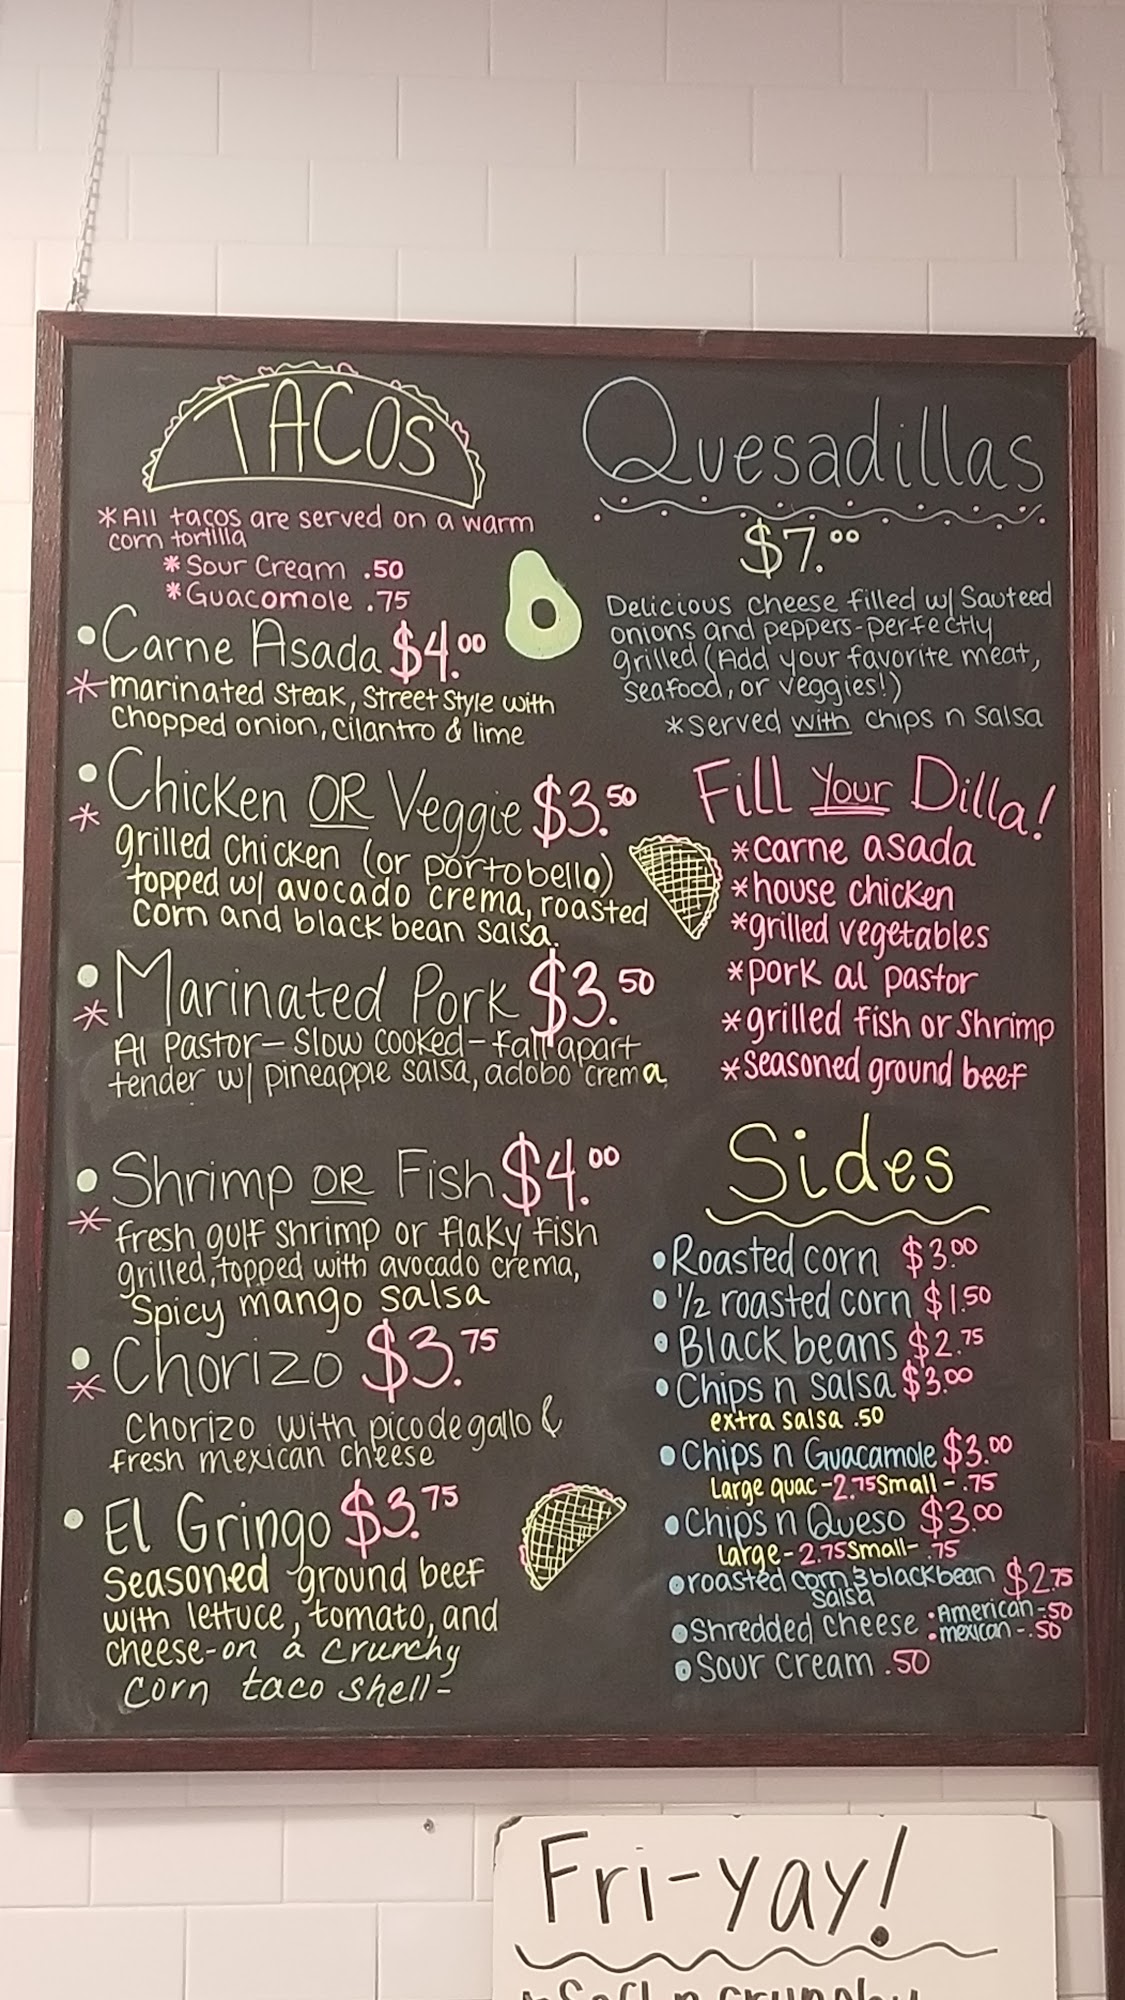 TACOS
*All tacos are served on a warm
corn tortilla
*Sour Cream .50
*Guacomole .75
•Carne Asada $4.00
*marinated steak, Street Style with
chopped onion, cilantro & lime
•Chicken OR Veggie $3.50
*
grilled chicken (or portobello)
topped w/ avocado crema, roasted
corn and black bean salsa.
•Marinated Pork $3.50
*
Al Pastor - Slow cooked - fall apart
tender w/ pineapple salsa, adobo crema
•Shrimp OR Fish $4.00
*
fresh gulf shrimp or flaky fish
grilled, topped with avocado crema,
Spicy mango salsa
•Chorizo $3.75
*
Chorizo with pico de gallo &
fresh mexican cheese
•El Gringo $3.75
Seasoned ground beef
with lettuce, tomato, and
cheese-on a crunchy
corn taco shell-
Quesadillas
$7.00
Delicious cheese filled w/ Sauteed
onions and peppers-perfectly
grilled (Add your favorite meat,
Seafood, or veggies!)
*Served with chips n salsa
Fill Your Dilla!
*carne asada
*house chicken
*grilled vegetables
*pork al pastor
*grilled fish or shrimp
*seasoned ground beef
Sides
•Roasted corn $3.00
•1/2 roasted corn $1.50
•Black beans $2.75
•Chips n salsa $3.00
extra salsa .50
•Chips n Guacamole $3.00
Large guac-2.75 Small-.75
•Chips n Queso $3.00
Large-2.75 Small-.75
•roasted corn & black bean $2.75
salsa
•Shredded cheese :American-.50
mexican-.50
•Sour cream .50
Fri-yay!